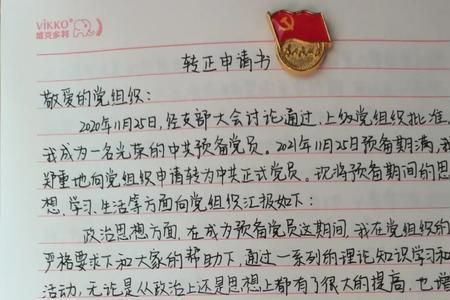 VIKKO®
维克多利
转正申请书
敬爱的党组织:
2020年11月25日,经支部大会讨论通过,上级党组织批准,
我成为一名光荣的中共预备党员。2021年11月25日预备期满,我
郑重地向党组织申请转为中共正式党员。现将预备期间的思
想、学习、生活等方面向党组织汇报如下:
政治思想方面,在成为预备党员这期间,我在党组织的
严格要求下和大家的帮助下,通过一系列的理论知识学习和
活动,无论是从政治上还是思想上都有了很大的提高,也增